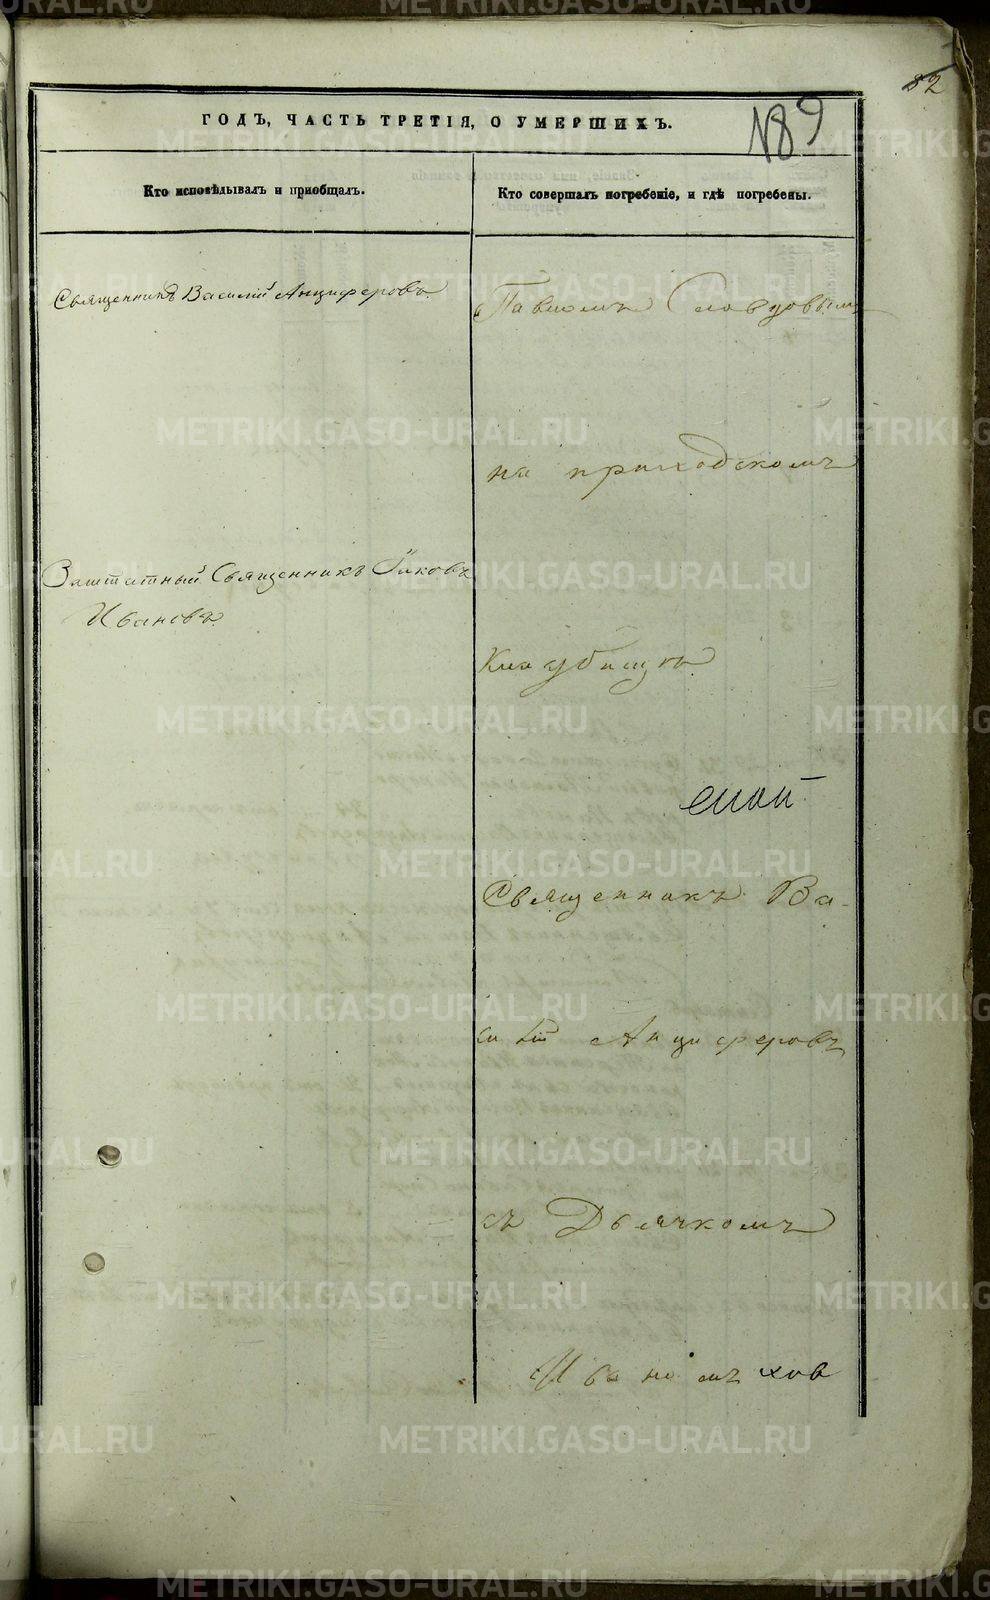 82
ГОДЪ, ЧАСТЬ ТРЕТІЯ, О УМЕРШИХЪ.
189
Кто исповѣдывалъ и пріобщалъ.
Кто совершалъ погребеніе, и гдѣ погребены.
Священникъ Василій Анциферовъ
Павломъ Словцовымъ
на приходскомъ
Заштатный Священникъ Іаковъ
Ивановъ
Кладбищѣ
Священникъ Ва-
силій Анциферовъ
съ Дьячкомъ
Иваномъ хов
METRIKI.GASO-URAL.RU